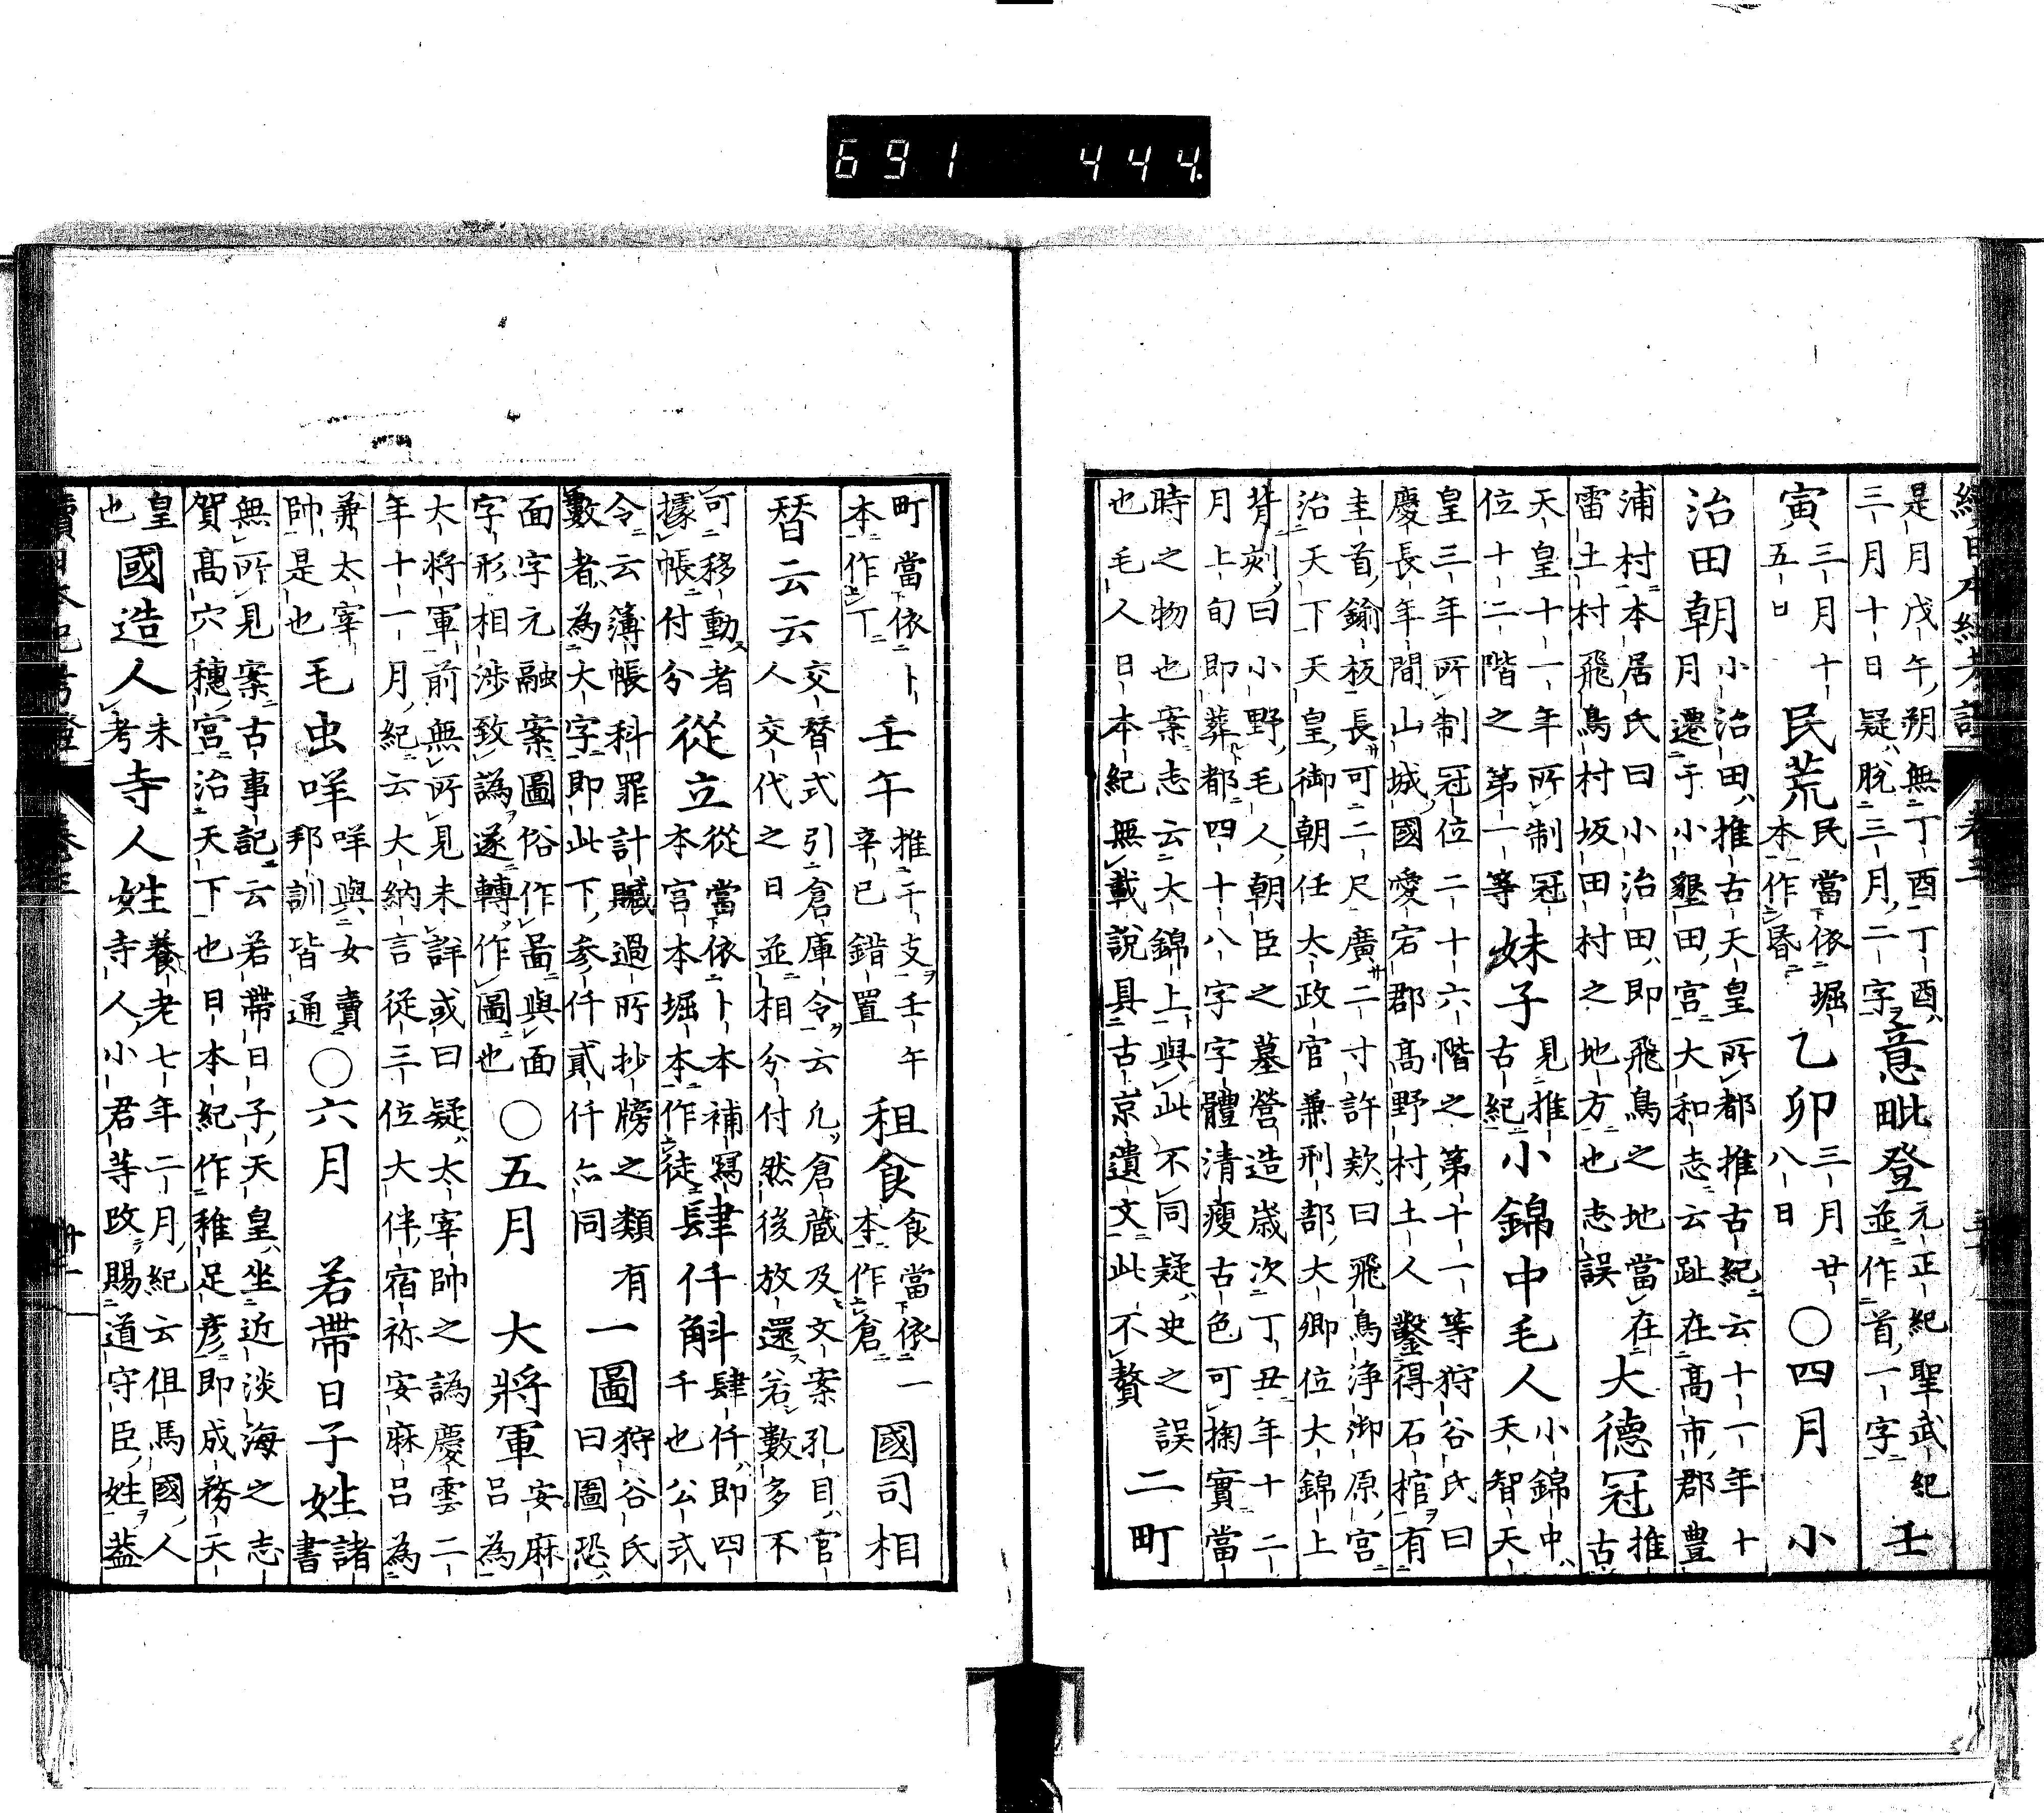 691 444.
是月戊午朔無丁酉丁酉ハ
三月十日疑ハ脱三月二字
意毗登
元正紀聖武紀
並作首一字
壬
寅
三月十
五日
民荒
民當依堀
本作昬
乙卯
三月廿
八日
○四月
小
治田朝
小治田推古天皇所都推古紀云十一年十
月遷于小墾田宮大和志云趾在高市郡豊
浦村本居氏曰小治田即飛鳥之地當在
雷土村飛鳥村坂田村之地方也志誤
大德冠
推
古
天皇十一年所制冠
位十二階之第一等
妹子
見推
古紀
小錦中毛人
小錦中
天智天
皇三年所制冠位二十六階之第十一等狩谷氏曰
慶長年間山城國愛宕郡高野村土人鑿得石棺有
圭首鍮板長可二尺廣二寸許欵曰飛鳥浄御原宮
治天下天皇御朝任太政官兼刑部大卿位大錦上
背刻曰小野毛人朝臣之墓營造歳次丁丑年十二
月上旬即葬都四十八字字體清瘦古色可掬實當
時之物也案志云大錦上與此不同疑史之誤
也毛人日本紀無載説具古京遺文此不贅
二町
町當依卜
本作丁
壬午
推干支壬午
辛巳錯置
租食
食當依一
本作倉
國司相
替云云
交替式引倉庫令云凡倉蔵及文案孔目官
人交代之日並相分付然後放還若數多不
可移動者
據帳付分
從立
從當依卜本補寫
本宮本堀本作徒
肆仟斛
肆仟即四
千也公式
令云簿帳科罪計贓過所抄牓之類有
數者為大字即此下参仟貳仟亦同
一圖
狩谷氏
曰圖恐
面字元融案圖俗作啚與面
字形相渉致譌遂轉作圖也
○五月
大將軍
安麻
呂為
大將軍前無所見未詳或曰疑太宰帥之譌慶雲二
年十一月紀云大納言從三位大伴宿祢安麻呂為
兼太宰
帥是也
毛虫咩
咩與女賣
邦訓皆通
○六月
若帶日子姓
諸
書
無所見案古事記云若帶日子天皇坐近淡海之志
賀高穴穂宮治天下也日本紀作稚足彦即成務天
皇
也
國造人
未
考
寺人姓
養老七年二月紀云但馬國人
寺人小君等改賜道守臣姓蓋